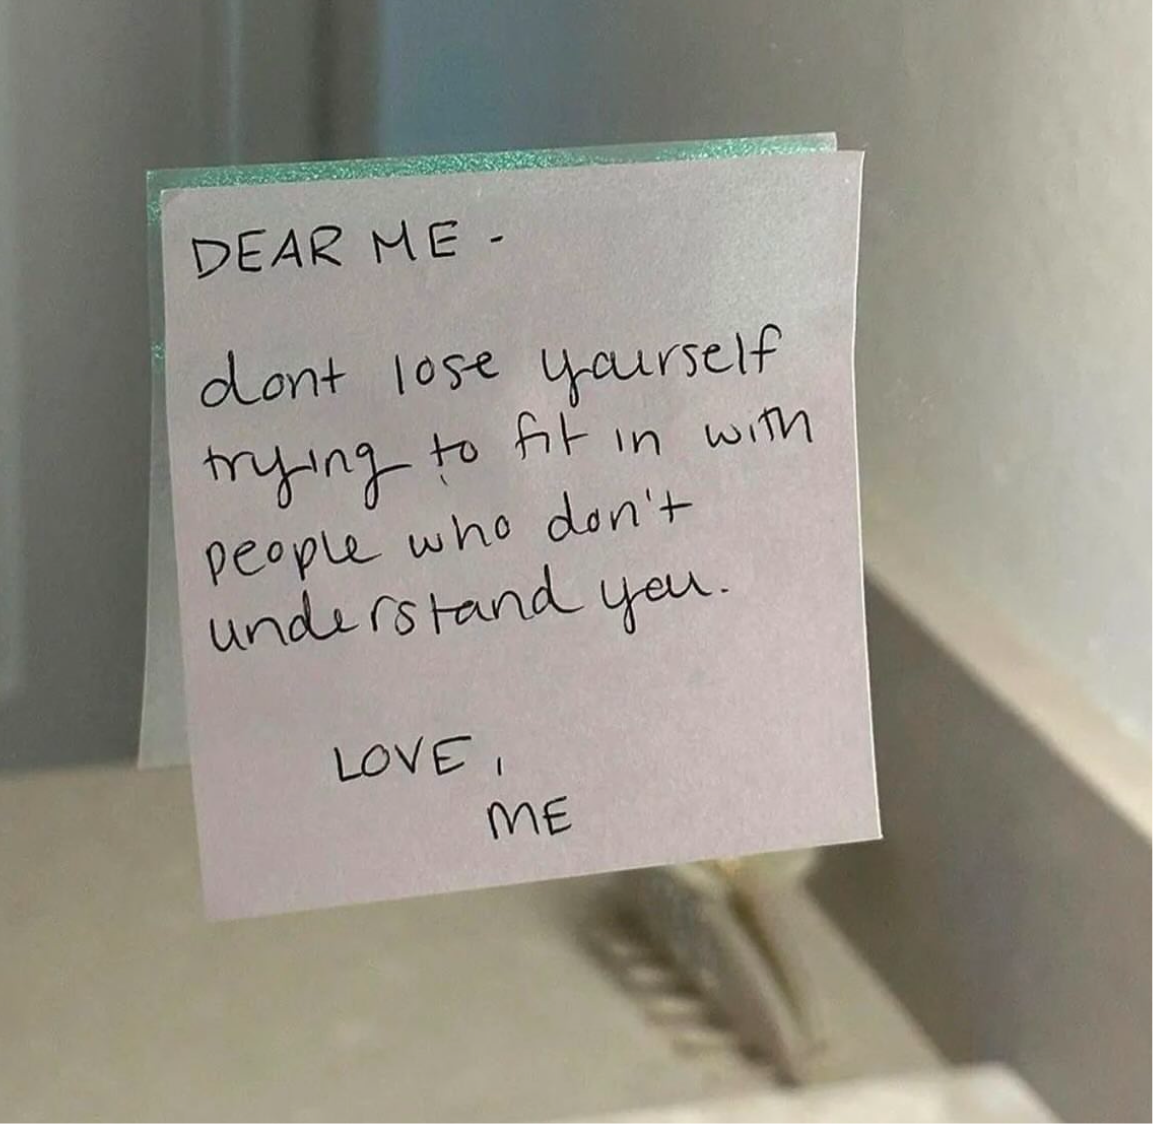 DEAR ME -
dont lose yourself
trying to fit in with
people who don't
understand you.
LOVE,
ME